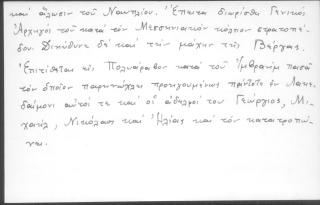 καί ἅλωσιν τοῦ Ναυπλίου. Ἔπειτα διωρίσθη Γενικός
Ἀρχηγός τοῦ κατά τόν Μεσσηνιακόν κόλπον στρατοπέ-
δου. Διηύθυνε δέ καί τήν μάχην τῆς Βέργας.
Ἐπιτίθεται εἰς Πολυάραβον κατά τοῦ Ἰμβραήμ πασσᾶ
τόν ὁποῖον παρηνώχλει προηγουμένως παντοῦ ἐν Λακε-
δαίμονι αὐτός τε καί οἱ ἀδελφοί του Γεώργιος, Μι-
χαήλ, Νικόλαος καί Ἠλίας καί τόν κατατροπώ-
νει.